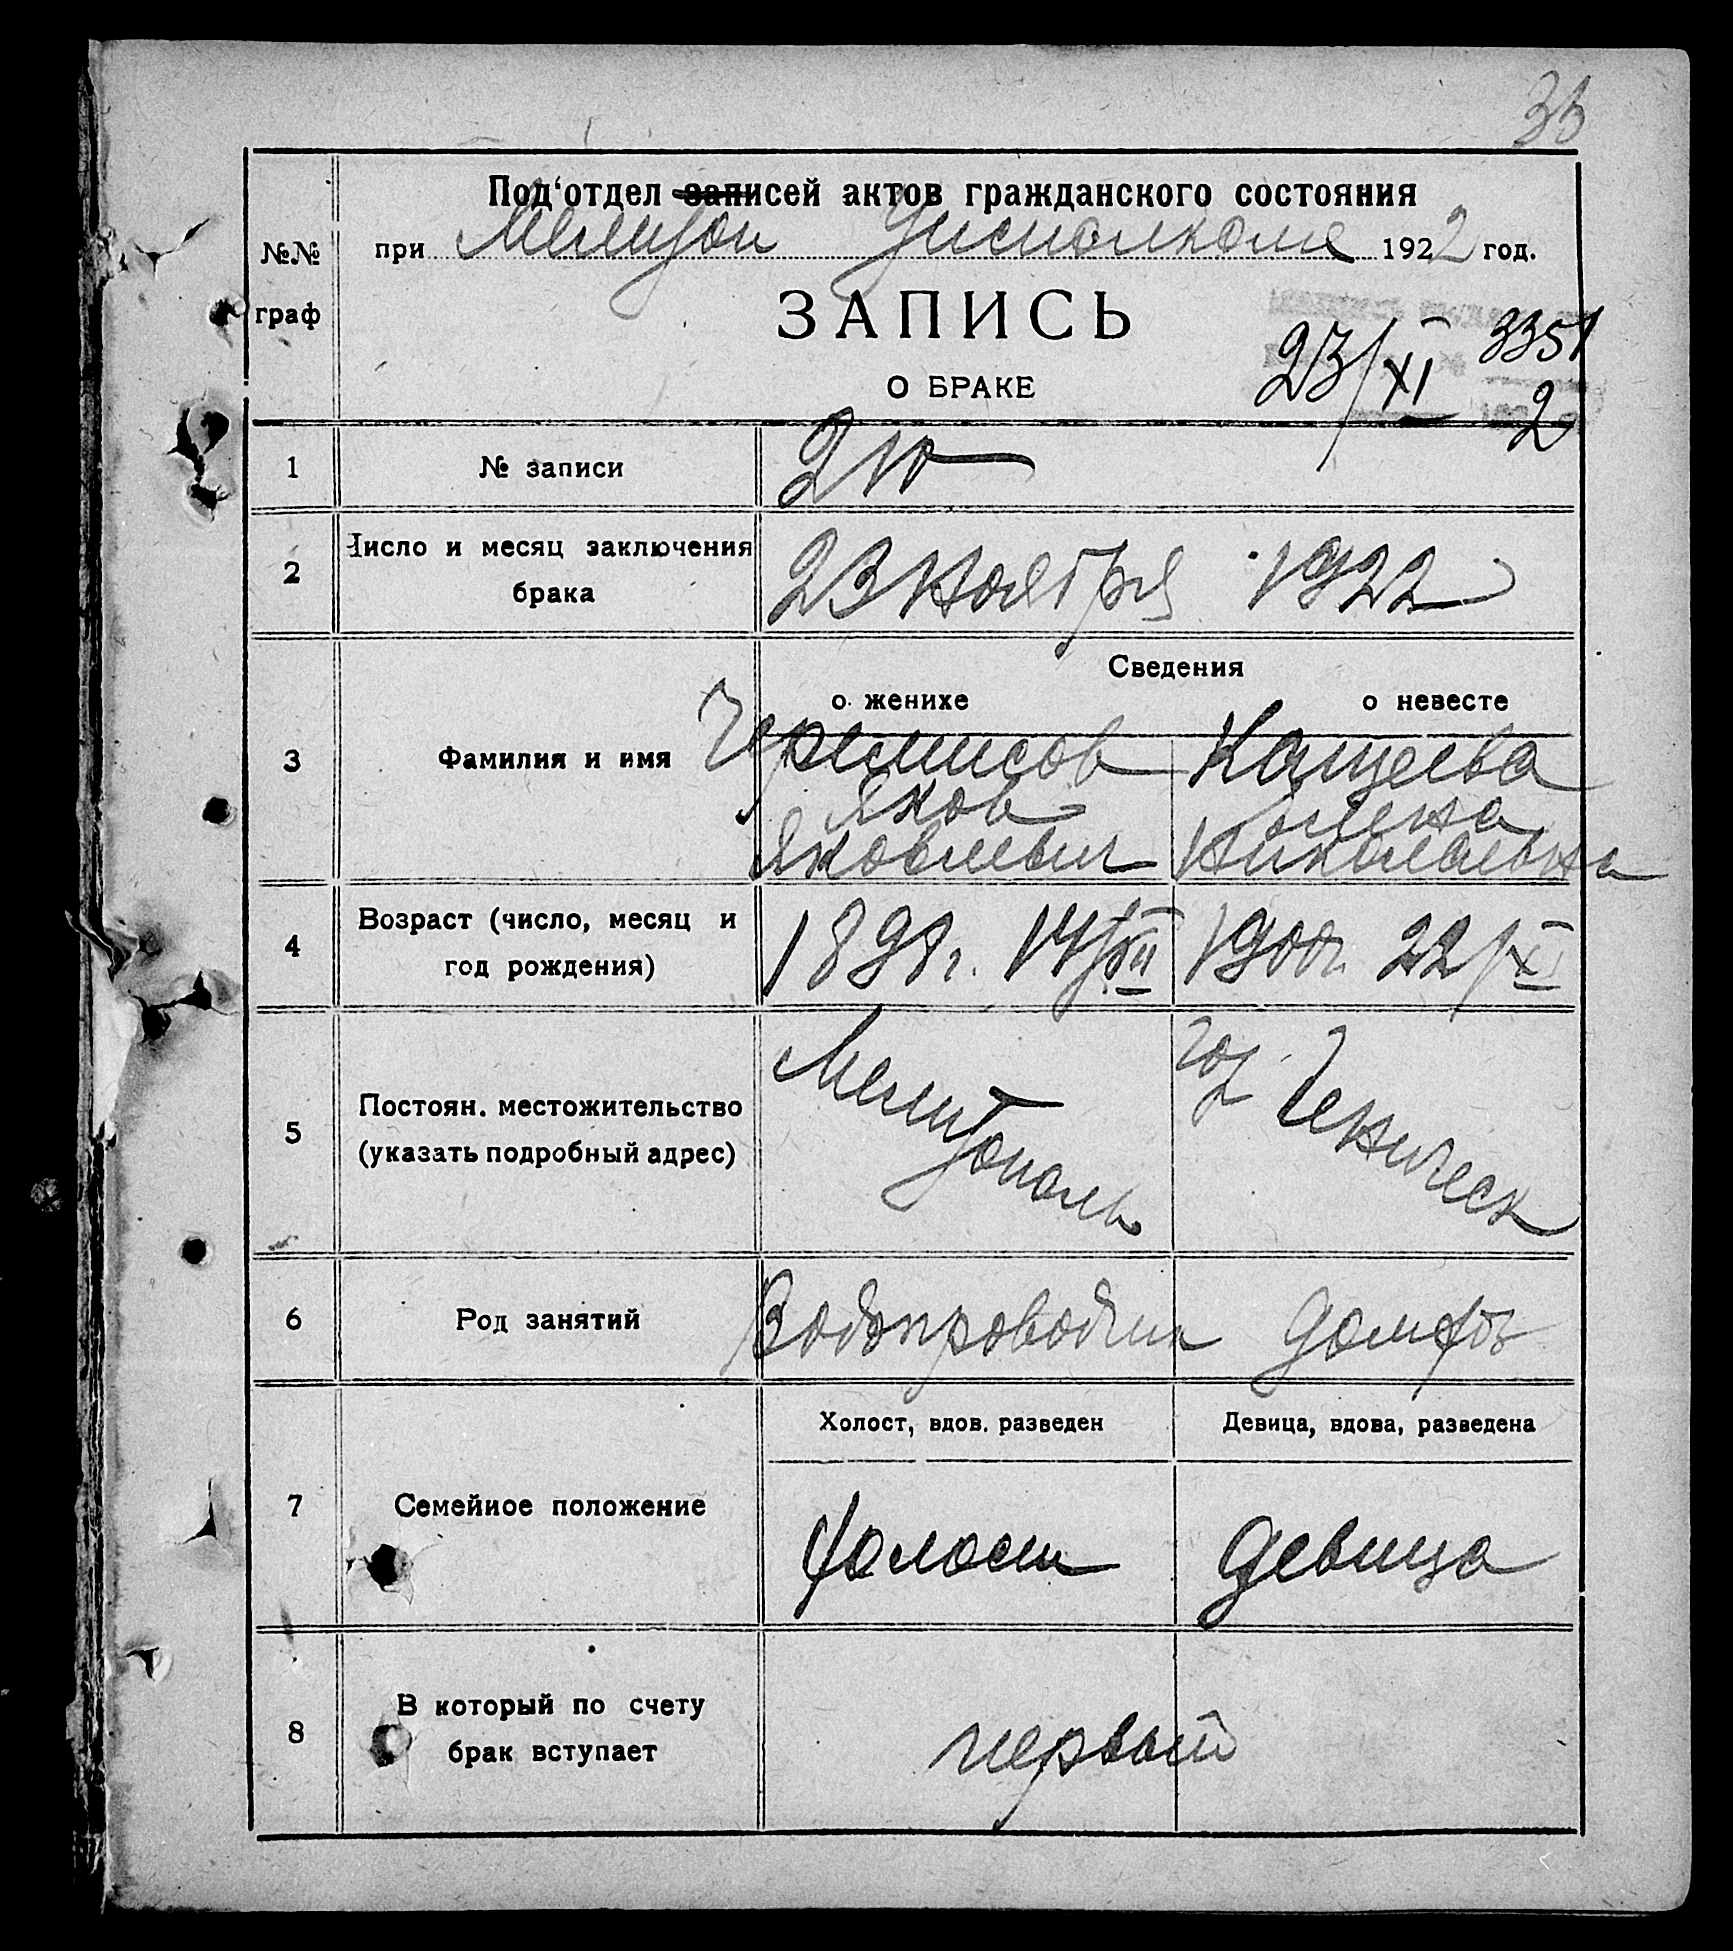 Под‘отдел записей актов гражданского состояния
№№ граф
при Мелитоп Уисполкоме 1922 год.
ЗАПИСЬ
О БРАКЕ
23/XI 3351
2
1 № записи 210
2 Число и месяц заключения брака 23 Ноября 1922
Сведения
о женихе о невесте
3 Фамилия и имя Черемисов Кащеева
Яков Елена
Яковлевич Николаевна
4 Возраст (число, месяц и год рождения) 1891г. 14/XII 1900г. 22/XI
5 Постоян. местожительство (указать подробный адрес) Мелитополь гор. Геническ
6 Род занятий Водопроводчик
7 Семейное положение
Холост, вдов. разведен Девица, вдова, разведена
Холост Девица
8 В который по счету брак вступает первый